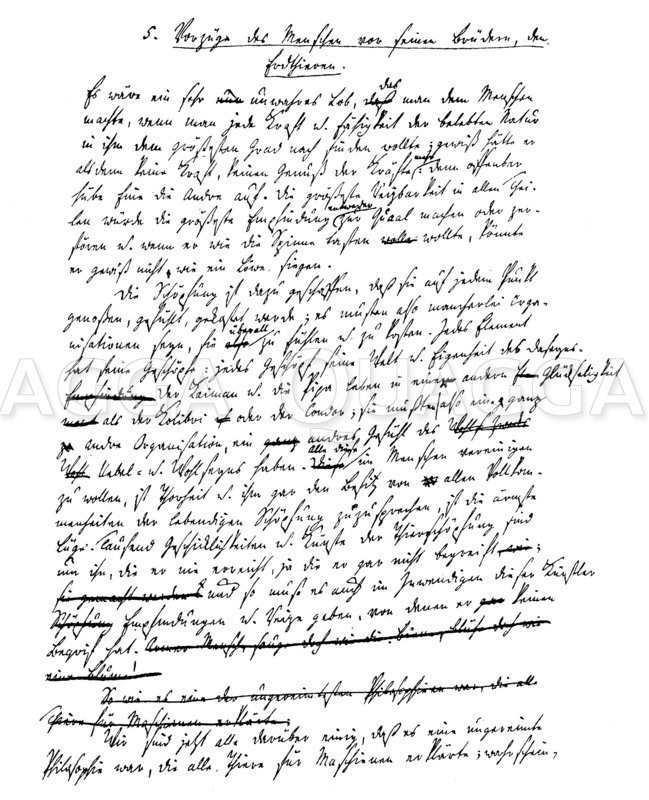 5. Vorzüge des Menschen vor seinen Brüdern, den
Erdthieren.
Es wäre ein sehr nun unwahres Lob, daß das man dem Menschen
machte, wenn man jede Kraft u. Fähigkeit der belebten Natur
in ihm dem größesten Grad nach finden wollte; gewiß hätte er
alsdenn keine Kraft, keinen Genuß der Kräfte mehr: denn offenbar
hübe Eine die Andre auf. Die größeste Reizbarkeit in allen Thei-
len würde die größeste Empfindung entweder zur Quaal machen oder zer-
stören u. wenn er wie die Spinne tasten wollte, könnte
er gewiß nicht, wie ein Löwe siegen.
Die Schöpfung ist dazu geschaffen, daß sie auf jedem Punkt
genoßen, gefühlt, gekostet werde; es musten also mancherlei Orga-
nisationen seyn, sie überall also zu fühlen u. zu kosten. Jedes Element
hat seine Geschöpfe: jedes Geschöpf seine Welt u. Eigenheit des Daseyns.
Empfindung Der Kaiman u. die in einer andern Glückseligkeit
als der Kolibri oder der Condor; sie mußten also eine ganz
andre Organisation, ein ganz andres Gefühl des
Uebel- u. Wohlseyns haben. Alle diese Diese im Menschen vereinigen
zu wollen, ist Thorheit u. ihm gar den Besitz von allen Vollkom-
menheiten der lebendigen Schöpfung zuzusprechen, ist die ärmste
Lüge. Tausend Geschicklichkeiten u. Künste der Thierschöpfung sind
um ihn, die er nie erreicht, ja die er gar nicht begreift wie
sie gemacht werden und so muß es auch im Inwendigen dieser Künstler
Schöpfung Empfindungen u. Reize geben, von denen er gar keinen
Begrif hat.
eine Blume!
So wie es eine der ungereimtesten Philosophieen war, die alle
Thiere für Maschienen erklärte;
Wir sind jetzt alle darüber einig, daß es eine ungereimte
Philosophie war, die alle Thiere für Maschienen erklärte; wahrschein,
AGGA QUAGGA